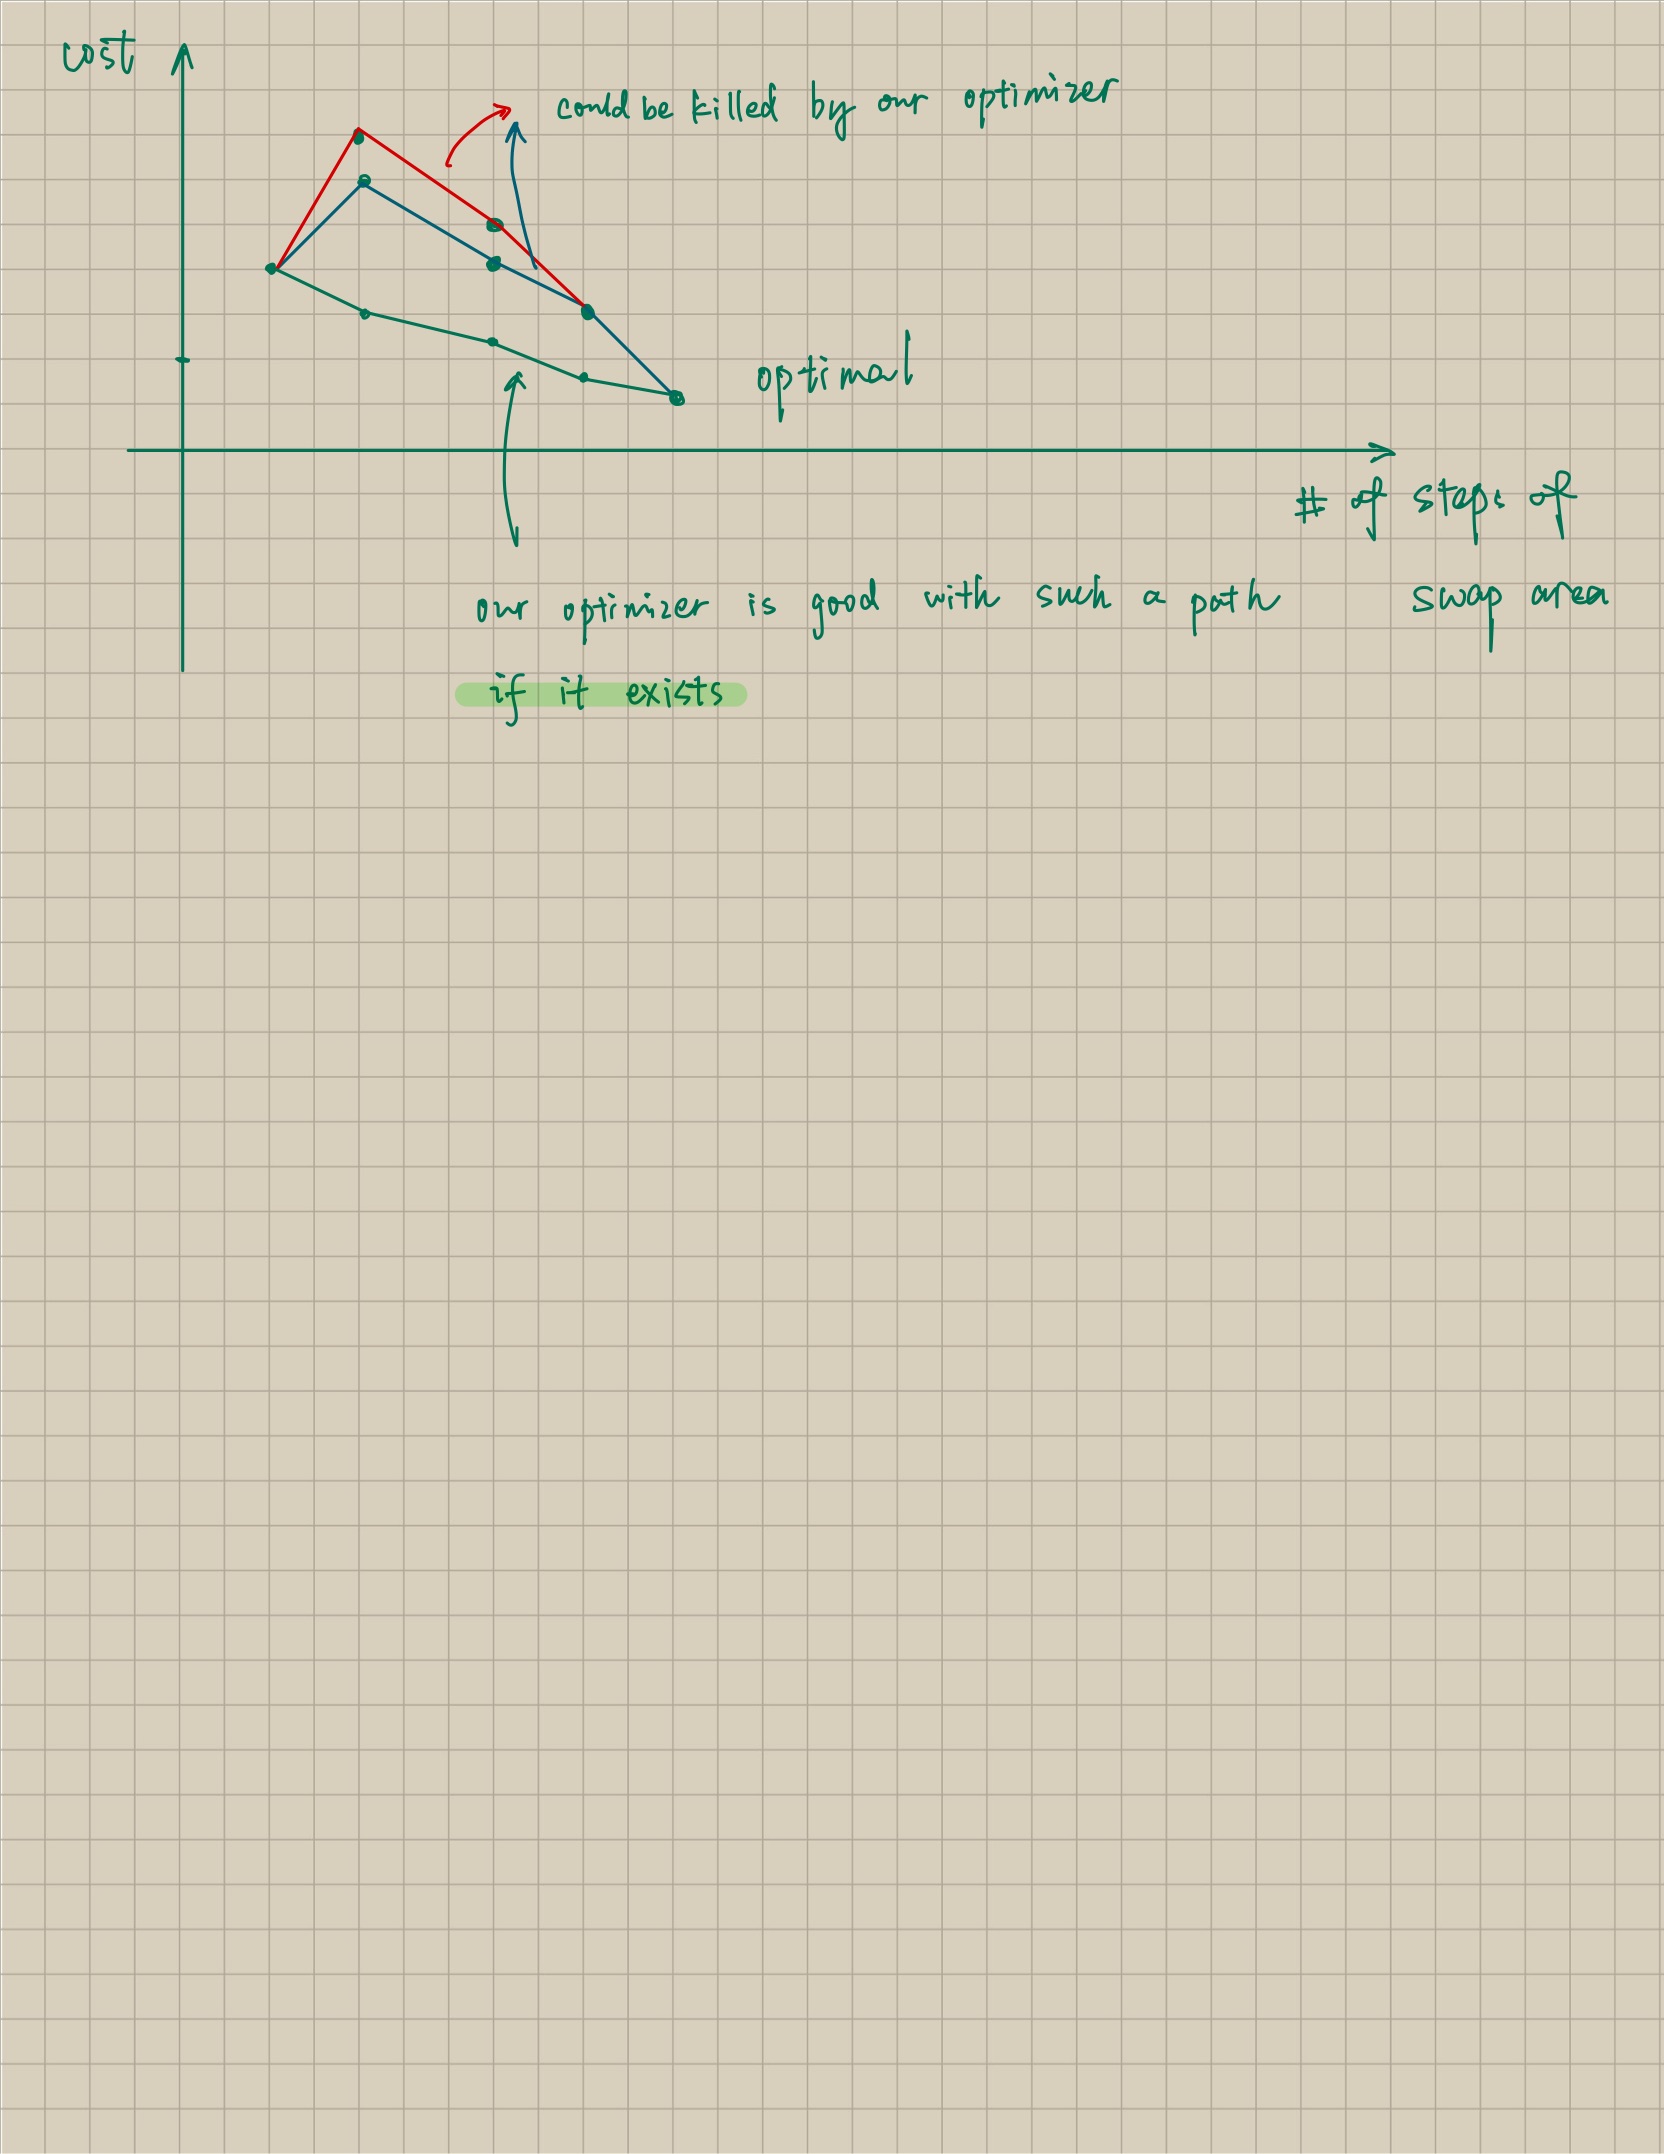 cost
could be killed by our optimizer
optimal
# of steps of
swap area
our optimizer is good with such a path
if it exists